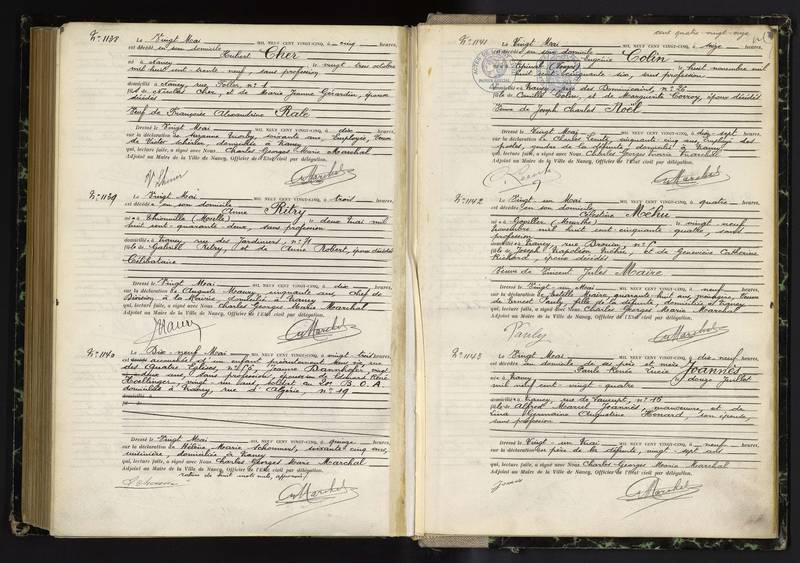 N° 1138
Le Vingt Mai MIL NEUF CENT VINGT-CINQ, à cinq heures,
est décédé en son domicile Hubert Cher
né à Nancy le vingt trois octobre
mil huit cent trente neuf, sans profession
domicilié à Nancy, rue
fils de Nicolas Cher, et de Marie Jeanne Gérardin, époux
décédés
Veuf de Françoise Alexandrine Rale
Dressé le Vingt Mai MIL NEUF CENT VINGT-CINQ, à dix heures,
sur la déclaration de Suzanne soixante ans, Employée, Veuve
de Victor domiciliée à Nancy
qui, lecture faite, a signé avec Nous Charles Georges Marie Marchal
Adjoint au Maire de la Ville de Nancy, Officier de l'Etat civil par délégation.
N° 1139
Le Vingt Mai MIL NEUF CENT VINGT-CINQ, à trois heures,
est décédée en son domicile Anne Retry
née à Thionville (Moselle) le deux Mai mil
huit cent quarante deux, sans profession
domiciliée à Nancy, rue des Jardiniers, n° 71
fille de Gabriel Retry, et de Anne Robert, époux décédés
Célibataire
Dressé le Vingt Mai MIL NEUF CENT VINGT-CINQ, à dix heures,
sur la déclaration de Auguste Maury, cinquante ans, chef de
Division, à la Mairie, domicilié à Nancy
qui, lecture faite, a signé avec Nous Charles Georges Marie Marchal
Adjoint au Maire de la Ville de Nancy, Officier de l'Etat civil par délégation.
N° 1140
Le Dix-neuf Mai MIL NEUF CENT VINGT-CINQ, à vingt trois heures,
est accouchée d'un enfant présentement sans vie, rue
des Quatre Eglises, n° Jeanne Dannhofer, vingt
deux ans, sans profession, épouse de Edouard René
vingt un ans, soldat au 20e B.O.A.
domiciliés à Nancy, rue d'Algérie, n° 19
Dressé le Vingt Mai MIL NEUF CENT VINGT-CINQ, à quinze heures,
sur la déclaration de Hélène Marie Schommers, soixante cinq ans,
domiciliée à Nancy
qui, lecture faite, a signé avec Nous Charles Georges Marie Marchal
Adjoint au Maire de la Ville de Nancy, Officier de l'Etat civil par délégation.
cent quatre-vingt-seize
N° 1141
Le Vingt Mai MIL NEUF CENT VINGT-CINQ, à seize heures,
est décédée en son domicile Eugénie Colin
née à Epinal (Vosges) le huit novembre mil
huit cent cinquante six, sans profession
domiciliée à Nancy, rue des Dominicains, n° 26
fille de Camille Colin, et de Marguerite Corroy, époux décédés
Veuve de Joseph Charles Noël
Dressé le Vingt Mai MIL NEUF CENT VINGT-CINQ, à dix sept heures,
sur la déclaration de Charles cinquante cinq ans, employé des
postes, gendre de la défunte, domicilié à Nancy
qui, lecture faite, a signé avec Nous Charles Georges Marie Marchal
Adjoint au Maire de la Ville de Nancy, Officier de l'Etat civil par délégation.
N° 1142
Le Vingt un Mai MIL NEUF CENT VINGT-CINQ, à quatre heures,
est décédée en son domicile Mehu
née à (Meurthe) le vingt neuf
novembre mil huit cent cinquante quatre, sans
profession
domiciliée à Nancy, rue Drouin, n° 5
fille de Joseph Napoléon Mehu, et de Geneviève Catherine
Richard, époux décédés
Veuve de Vincent Jules Maire
Dressé le Vingt-un Mai MIL NEUF CENT VINGT-CINQ, à neuf heures,
sur la déclaration de Maire, quarante huit ans, ménagère, Veuve
de Ernest Pauly, fille de la défunte, domiciliée à Nancy
qui, lecture faite, a signé avec Nous Charles Georges Marie Marchal
Adjoint au Maire de la Ville de Nancy, Officier de l'Etat civil par délégation.
Pauly
N° 1143
Le Vingt Mai MIL NEUF CENT VINGT-CINQ, à dix-neuf heures,
est décédée au domicile de ses père et mère
Paule Renée Lucie Joannès
née à Nancy le douze Juillet
mil neuf cent vingt quatre
domiciliée à Nancy, rue de n° 15
fille de Alfred Marcel Joannès, manoeuvre, et de
Germaine Augustine son épouse,
sans profession
Dressé le Vingt-un Mai MIL NEUF CENT VINGT-CINQ, à neuf heures,
sur la déclaration du père de la défunte, vingt sept ans
qui, lecture faite, a signé avec Nous Charles Georges Marie Marchal
Adjoint au Maire de la Ville de Nancy, Officier de l'Etat civil par délégation.